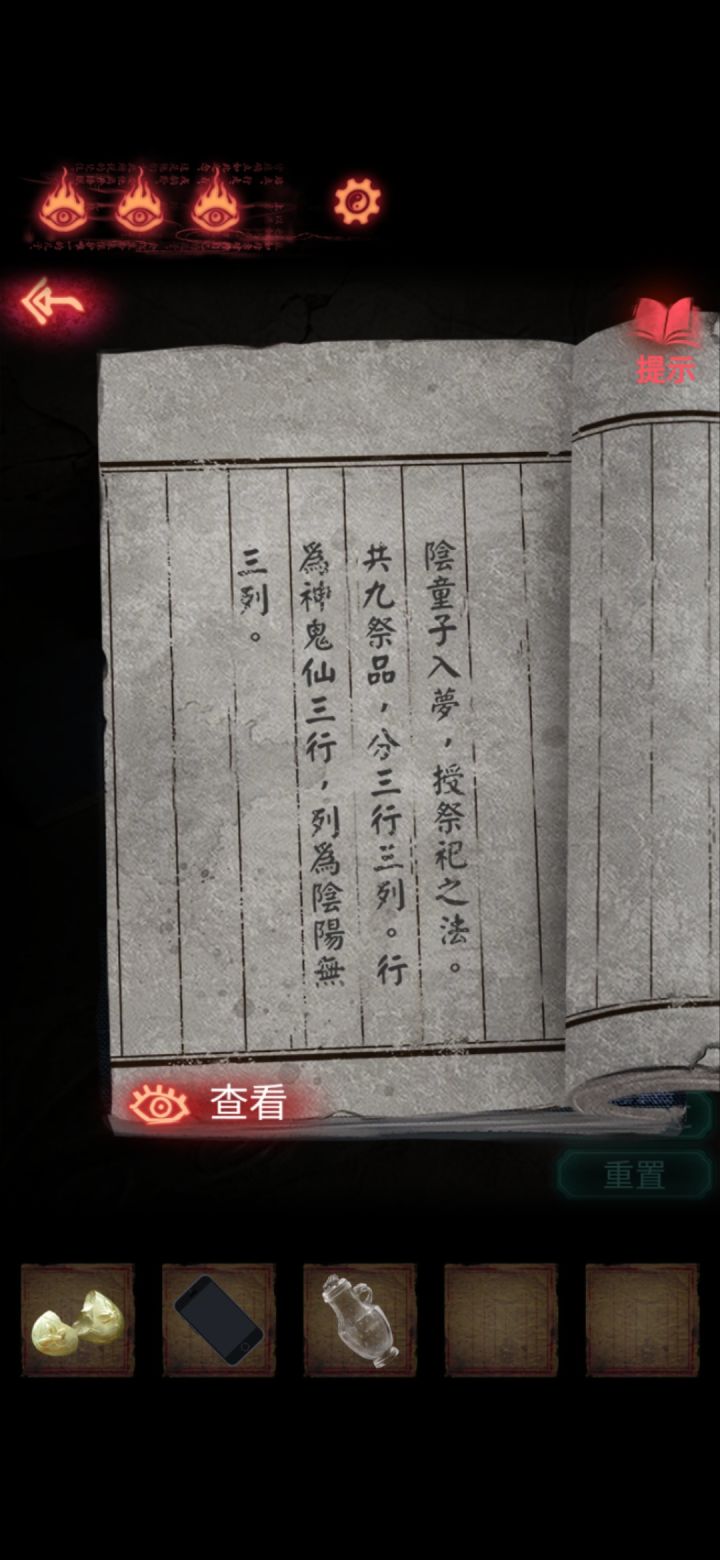 提示
陰童子入夢，授祭祀之法。
共九祭品，分三行三列。行
為神鬼仙三行，列為陰陽無
三列。
查看
重置